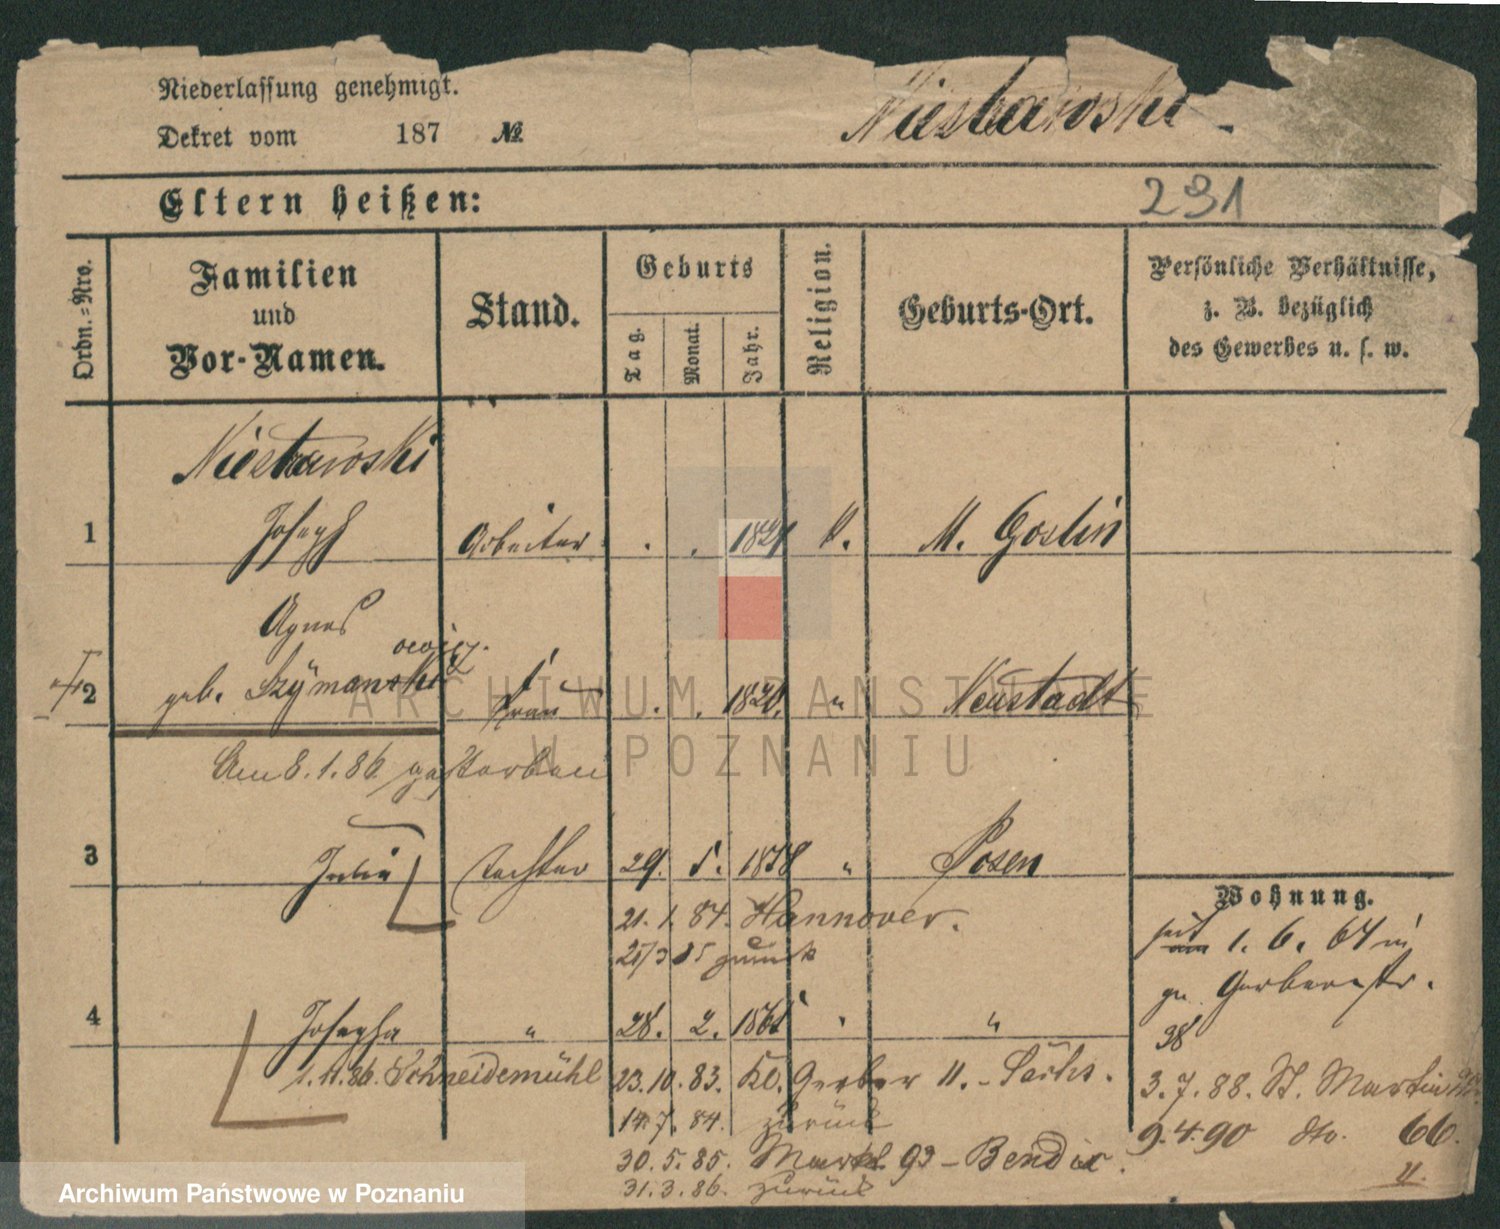 Niederlassung genehmigt.
Dekret vom 187 №
Niestawski
Eltern heißen:
231
Ordn.=Nro.
Familien
und
Vor-Namen.
Stand.
Geburts
Tag.
Monat.
Jahr.
Religion.
Geburts-Ort.
Persönliche Verhältnisse,
z. B. bezüglich
des Gewerbes u. s. w.
Niestawski
1 Joseph Arbeiter . . 1821 k. M. Goslin
Agnes
owicz.
2 geb. Szymanski Frau . . 1820. " Neustadt
Am 8.1.86. gestorben
3 Julie Tochter 29. 5. 1858 " Posen
21. 1. 84. Hannover.
zurück
Wohnung.
seit am 1. 6. 64 in
gr. Gerberstr.
38
4 Josepha " 28. 2. 1861 " "
1.11.86. Schneidemühl 23.10.83. Kl. Gerber 11. - Sachs.
14.7.84. zurück
30.5.85. Markt 93 - Bendix.
31.3.86. zurück
3.7.88. St. Martin
9.4.90 dto. 66.
ARCHIWUM PAŃSTWOWE
W POZNANIU
Archiwum Państwowe w Poznaniu